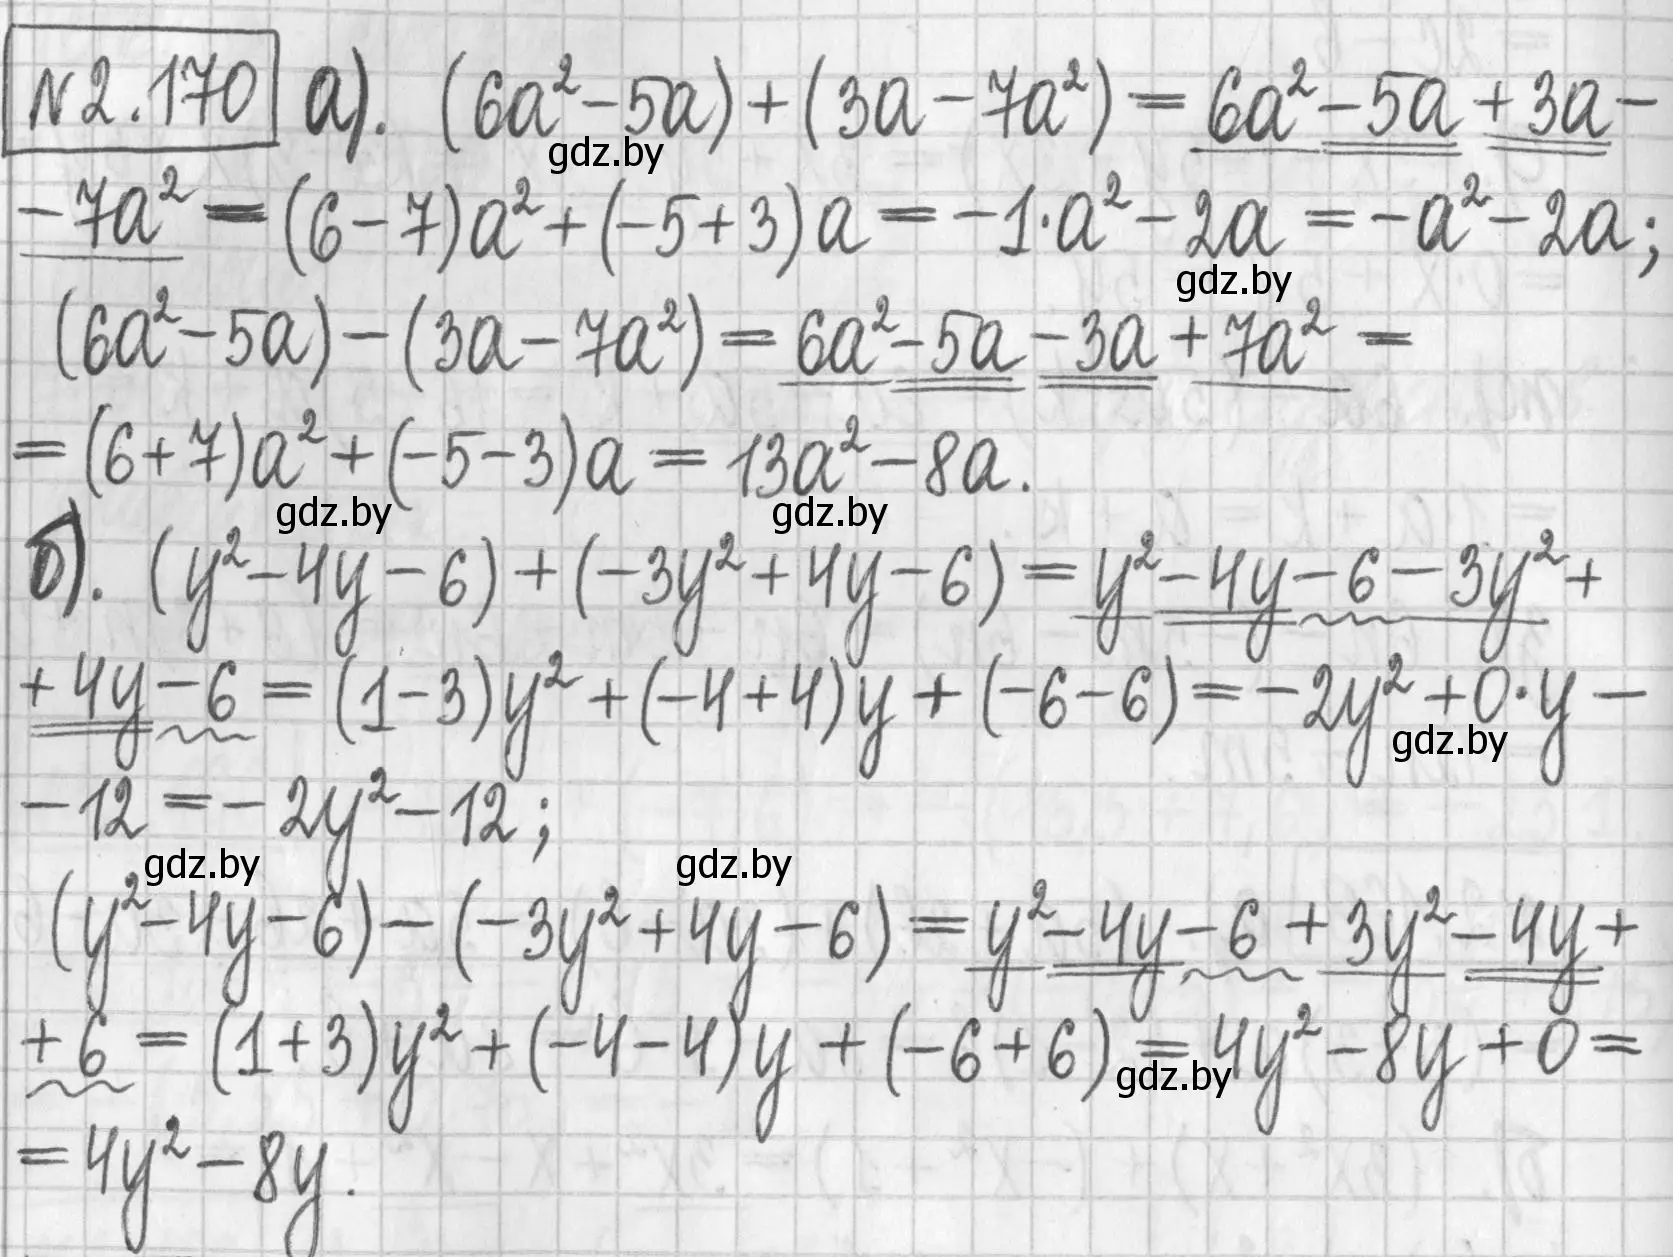 №2.170 а). (6a² - 5a) + (3a - 7a²) = 6a² - 5a + 3a -
gdz.by
- 7a² = (6 - 7)a² + (-5 + 3)a = -1·a² - 2a = -a² - 2a;
gdz.by
(6a² - 5a) - (3a - 7a²) = 6a² - 5a - 3a + 7a² =
= (6 + 7)a² + (-5 - 3)a = 13a² - 8a.
gdz.by gdz.by
б). (y² - 4y - 6) + (-3y² + 4y - 6) = y² - 4y - 6 - 3y² +
+ 4y - 6 = (1 - 3)y² + (-4 + 4)y + (-6 - 6) = -2y² + 0·y -
gdz.by
- 12 = -2y² - 12;
gdz.by gdz.by
(y² - 4y - 6) - (-3y² + 4y - 6) = y² - 4y - 6 + 3y² - 4y +
+ 6 = (1 + 3)y² + (-4 - 4)y + (-6 + 6) = 4y² - 8y + 0 =
gdz.by
= 4y² - 8y.